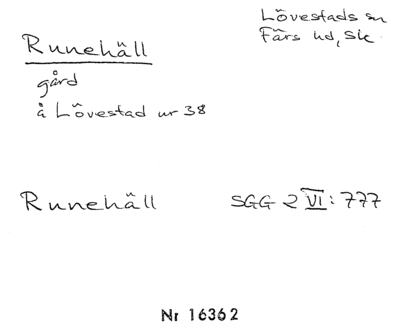 Runehäll
Lövestads sn
Färs hd, Sk.
gård
å Lövestad nr 38
Runehäll
SGG 2 VI: 777
Nr 16362